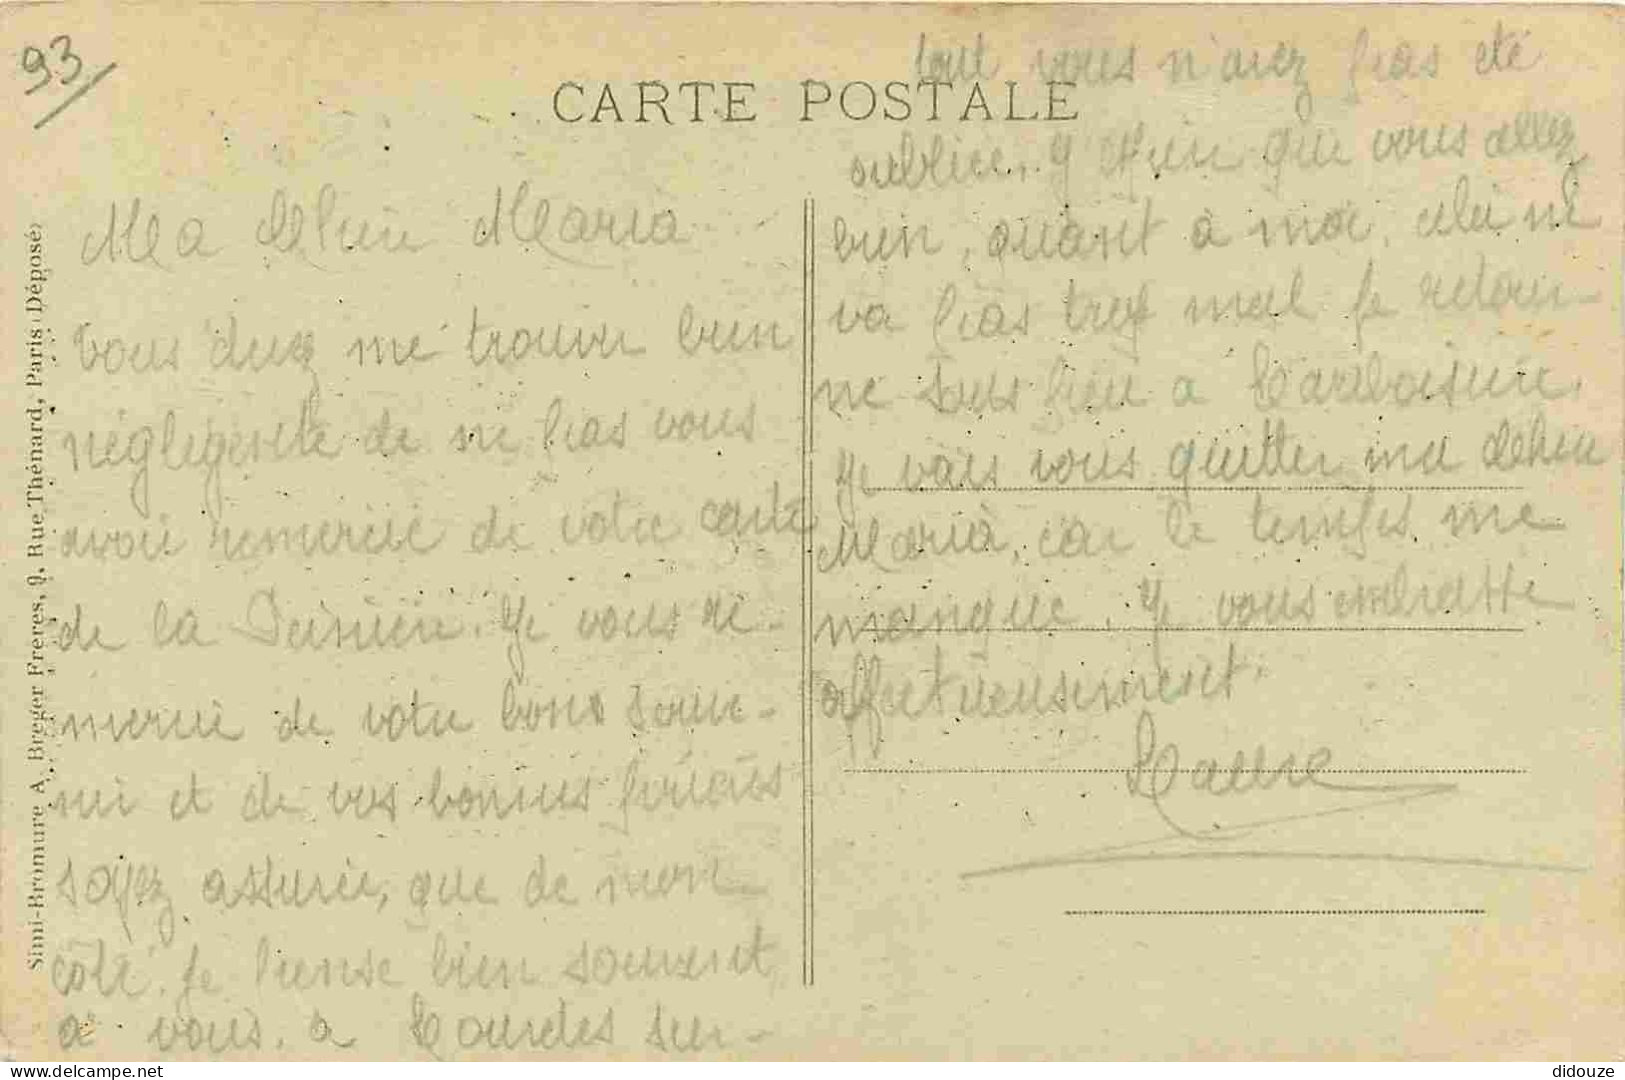 93
CARTE POSTALE
Simi-Bromure A. Breger Frères, 9, Rue Thénard, Paris (Déposé)
Ma Chère Maria
Vous devez me trouver bien
négligente de ne pas vous
avoir remercié de votre carte
de la Juinière. Je vous re-
mercie de votre bons souve-
nir et de vos bonnes
soyez assurée, que de mon
côté. je pense bien souvent
à vous. a Lourdes sur-
tout vous n'avez pas été
oubliée. J'espère que vous allez
bien, quant à moi, cela ne
va pas trop mal je retour-
ne sous peu a
Je vais vous quitter ma chère
Maria, car le temps me
manque. Je vous embrasse
affectueusement.
Laure
didouze
www.delcampe.net